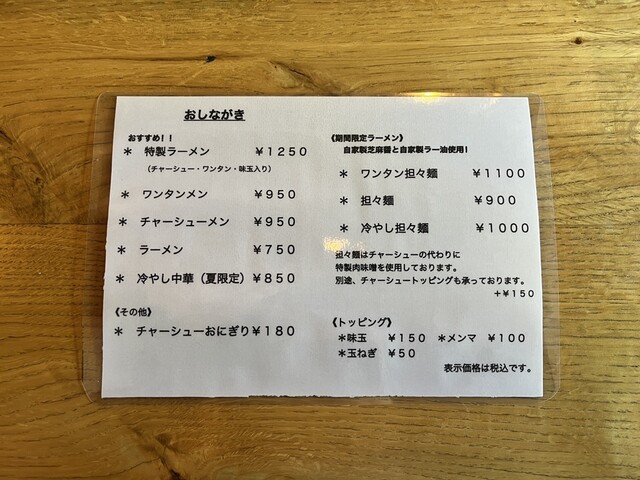 おしながき
おすすめ!!
＊ 特製ラーメン ￥1250
(チャーシュー・ワンタン・味玉入り)
＊ ワンタンメン ￥950
＊ チャーシューメン ￥950
＊ ラーメン ￥750
＊ 冷やし中華（夏限定）￥850
《その他》
＊ チャーシューおにぎり￥180
《期間限定ラーメン》
自家製芝麻醤と自家製ラー油使用!
＊ ワンタン担々麺 ￥1100
＊ 担々麺 ￥900
＊ 冷やし担々麺 ￥1000
担々麺はチャーシューの代わりに
特製肉味噌を使用しております。
別途、チャーシュートッピングも承っております。
＋￥150
《トッピング》
＊味玉 ￥150 ＊メンマ ￥100
＊玉ねぎ ￥50
表示価格は税込です。